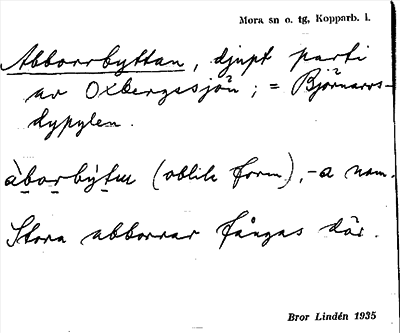 Mora sn o. tg, Kopparb. l.
Abborrbyttan, djupt parti
av Oxbergssjön; = Björnarvs-
dypylen.
(oblik form), -a nom.
Stora abborrar fångas där.
Bror Lindén 1935